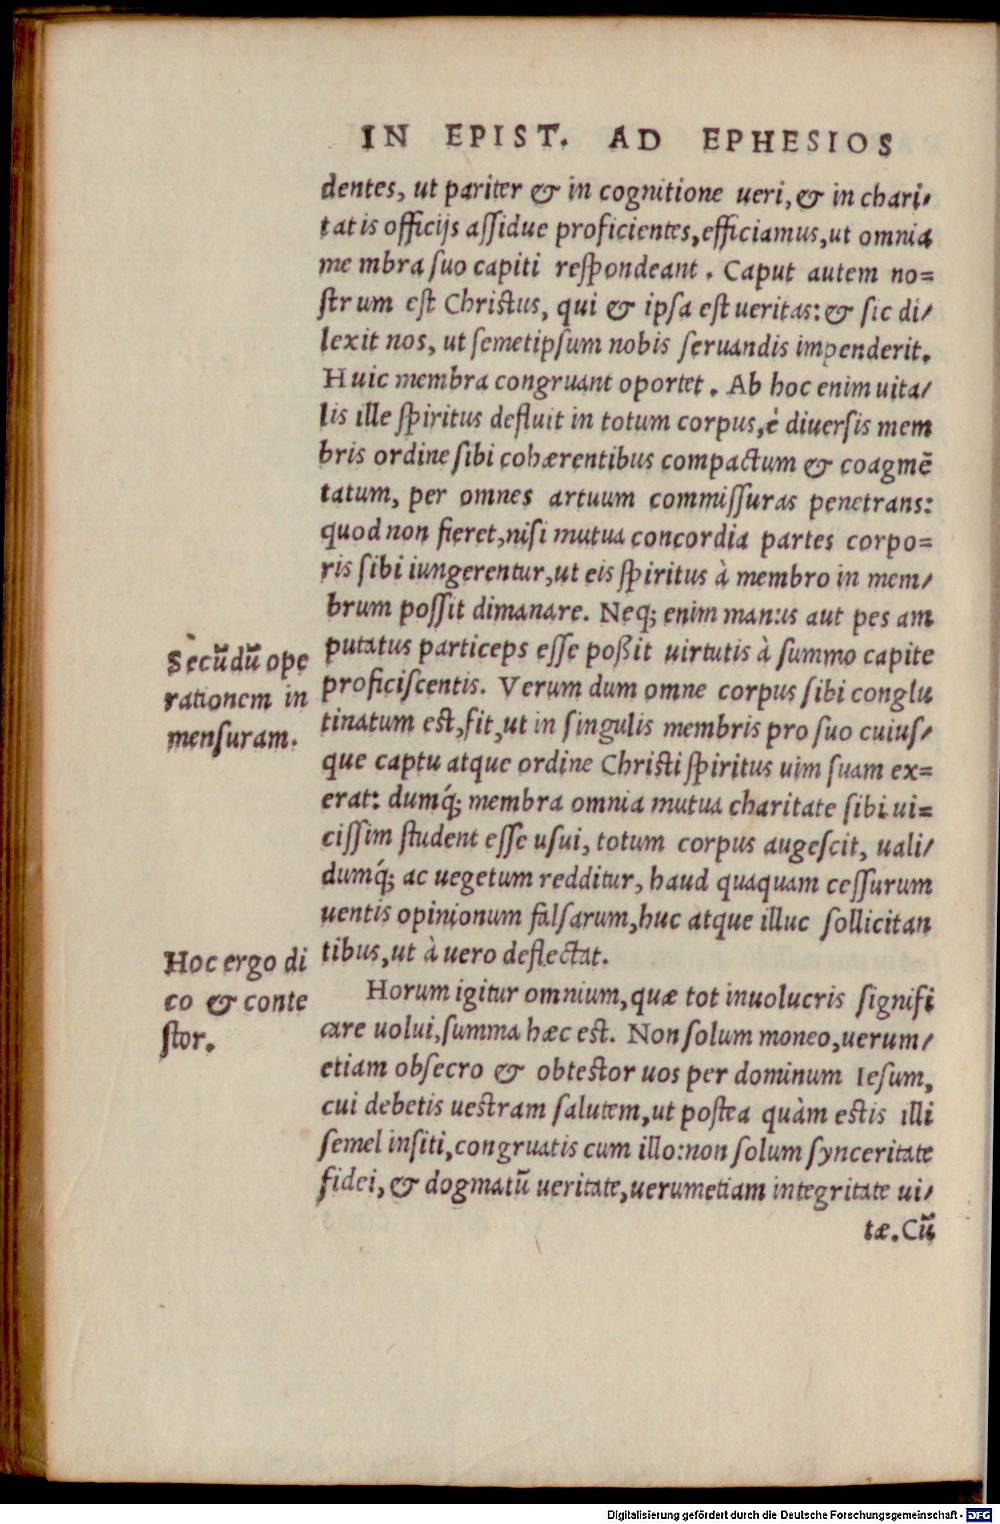 IN EPIST. AD EPHESIOS
dentes, ut pariter & in cognitione ueri, & in chari/
tatis officijs aſſidue proficientes, efficiamus, ut omnia
me mbra ſuo capiti reſpondeant. Caput autem no=
ſtrum eſt Chriſtus, qui & ipſa eſt ueritas: & ſic di/
lexit nos, ut ſemetipſum nobis ſeruandis impenderit.
Huic membra congruant oportet. Ab hoc enim uita/
lis ille ſpiritus defluit in totum corpus, è diuerſis mem
bris ordine ſibi cohærentibus compactum & coagmē
tatum, per omnes artuum commiſſuras penetrans:
quod non fieret, niſi mutua concordia partes corpo=
ris ſibi iungerentur, ut eis ſpiritus à membro in mem/
brum poſſit dimanare. Neq; enim manus aut pes am
putatus particeps eſſe poßit uirtutis à ſummo capite
proficiſcentis. Verum dum omne corpus ſibi conglu
tinatum eſt, fit, ut in ſingulis membris pro ſuo cuiuſ/
que captu atque ordine Chriſti ſpiritus uim ſuam ex=
erat: dumq́; membra omnia mutua charitate ſibi ui=
ciſſim ſtudent eſſe uſui, totum corpus augeſcit, uali/
dumq́; ac uegetum redditur, haud quaquam ceſſurum
uentis opinionum falſarum, huc atque illuc ſollicitan
tibus, ut à uero deflectat.
Horum igitur omnium, quæ tot inuolucris ſignifi
care uolui, ſumma hæc eſt. Non ſolum moneo, uerum/
etiam obſecro & obteſtor uos per dominum Ieſum,
cui debetis ueſtram ſalutem, ut poſtea quàm eſtis illi
ſemel inſiti, congruatis cum illo: non ſolum ſynceritate
fidei, & dogmatū ueritate, uerumetiam integritate ui/
tæ. Cū
Sècūdū ope
rationem in
menſuram.
Hoc ergo di
co & conte
ſtor.
Digitalisierung gefördert durch die Deutsche Forschungsgemeinschaft - DFG